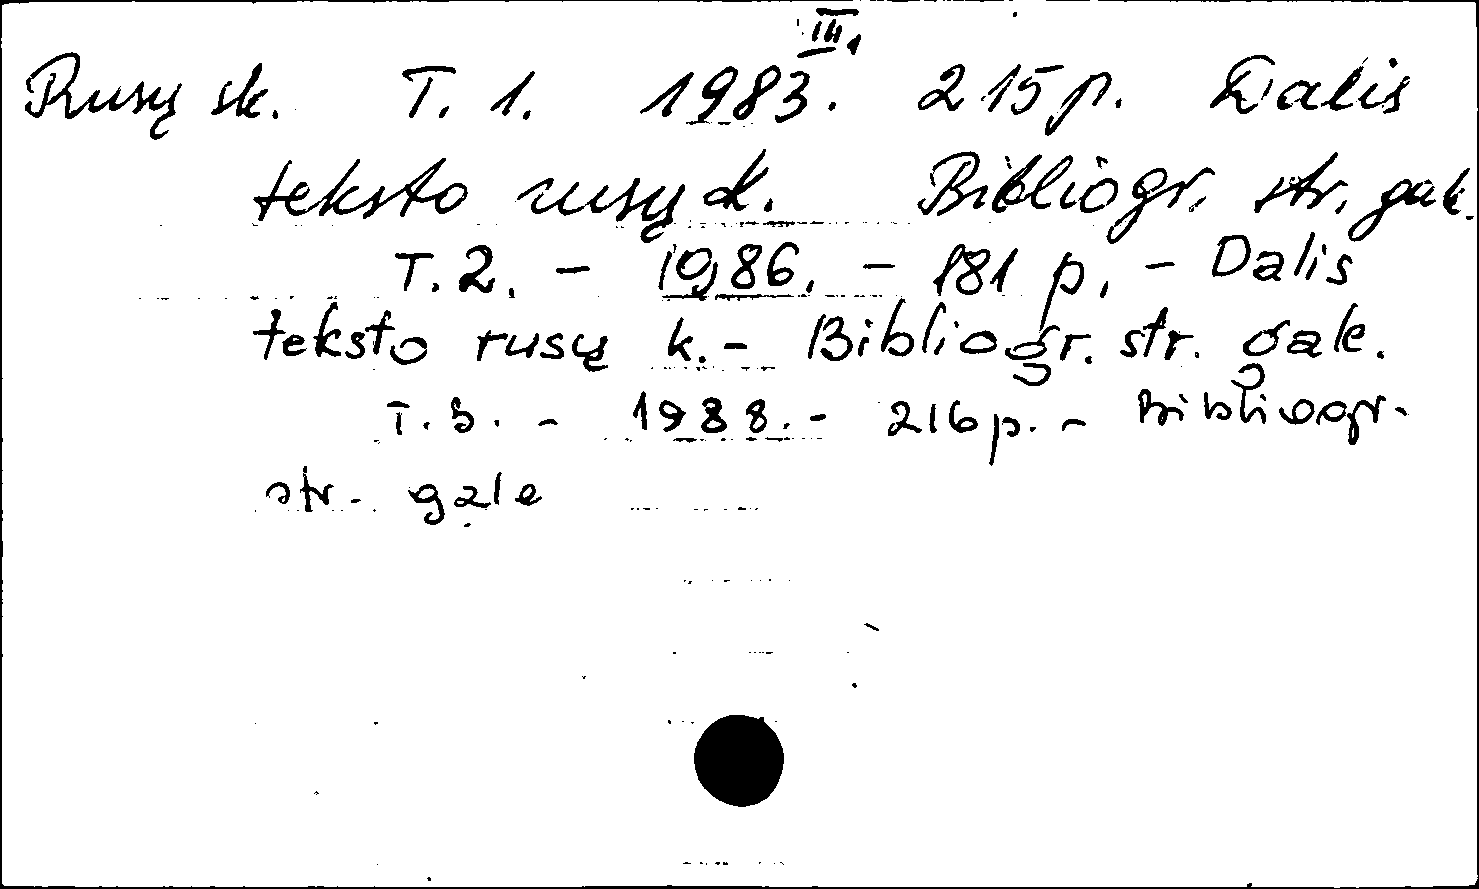 III,
Rusų sk. T. 1. 1983. 215 p. Dalis
teksto rusų k. Bibliogr. str. gale.
T. 2. – 1986. – 181 p. – Dalis
teksto rusų k. – Bibliogr. str. gale.
T. 3. – 1988. – 216 p. – Bibliogr.
str. gale